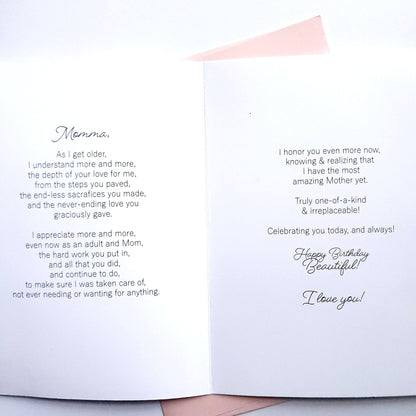 Momma,
As I get older,
I understand more and more,
the depth of your love for me,
from the steps you paved,
the end-less sacrafices you made,
and the never-ending love you
graciously gave.
I appreciate more and more,
even now as an adult and Mom,
the hard work you put in,
and all that you did,
and continue to do,
to make sure I was taken care of,
not ever needing or wanting for anything.
I honor you even more now,
knowing & realizing that
I have the most
amazing Mother yet.
Truly one-of-a-kind
& irreplaceable!
Celebrating you today, and always!
Happy Birthday
Beautiful!
I love you!